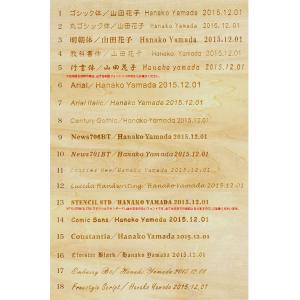 1 ゴシック体／山田花子 Hanako Yamada 2015.12.01
2 丸ゴシック体／山田花子 Hanako Yamada 2015.12.01
3 明朝体／山田花子 Hanako Yamada 2015.12.01
4 教科書体／山田花子 Hanako Yamada 2015.12.01
5 行書体／山田花子 Hanako Yamada 2015.12.01
6 Arial／Hanako Yamada 2015.12.01
7 Arial Italic／Hanako Yamada 2015.12.01
8 Century Gothic／Hanako Yamada 2015.12.01
9 News706BT／Hanako Yamada 2015.12.01
10 News701BT／Hanako Yamada 2015.12.01
11 Hanako Yamada 2015.12.01
12 Lucida Handwriting／Hanako Yamada 2015.12.01
13 STENCIL STD／HANAKO YAMADA 2015.12.01
14 Comic Sans／Hanako Yamada 2015.12.01
15 Constantia／Hanako Yamada 2015.12.01
16 Cloister Black／Hanako Yamada 2015.12.01
17 Embassy Bt／Hanako Yamada 2015.12.01
18 Freestyle Script／Hanako Yamada 2015.12.01